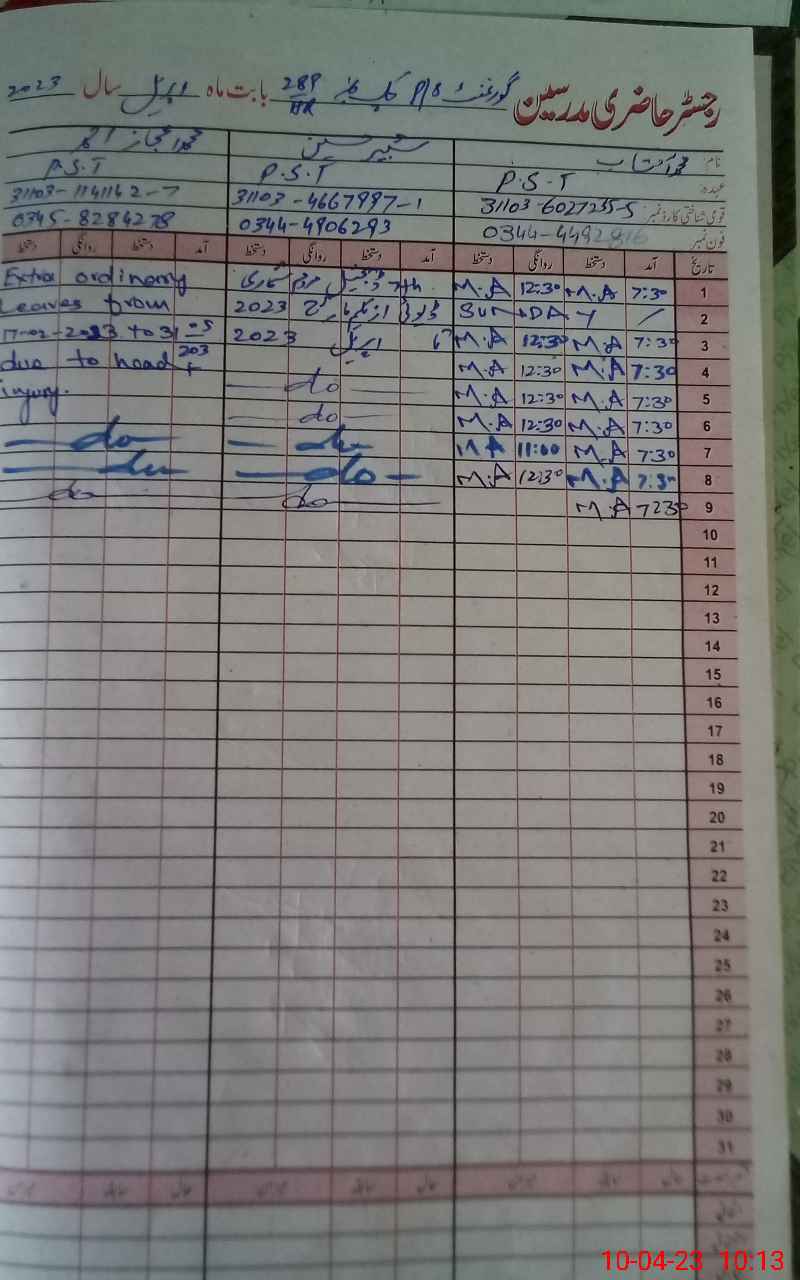 رجسٹر حاضری مدرسین گورنمنٹ P/S چک نمبر 289/HR بابت ماہ اپریل سال 2023
نام: محمد آفتاب شبیر حسین محمد اعجاز احمد
عہدہ P.S.T P.S.T P.S.T
قومی شناختی کارڈ نمبر: 31103-6027255-5 31103-4667997-1 31103-1141142-7
فون نمبر 0344-4492816 0344-4906293 0345-8284278
تاریخ آمد دستخط روانگی دستخط آمد دستخط روانگی دستخط آمد دستخط روانگی دستخط
1 7:30 M.A 12:30 M.A 7th ڈیجیٹل مردم شماری Extra ordinary
2 / SUNDAY ڈیوٹی از یکم مارچ 2023 Leaves from
3 7:30 M.A 12:30 M.A اپریل 2023 17-02-2023 to 31-05
4 7:30 M.A 12:30 M.A do due to head
5 7:30 M.A 12:30 M.A do injury.
6 7:30 M.A 12:30 M.A do do
7 7:30 M.A 11:00 M.A do do
8 7:30 M.A 12:30 M.A do do
9 7:30 M.A
10
11
12
13
14
15
16
17
18
19
20
21
22
23
24
25
26
27
28
29
30
31
10-04-23 10:13